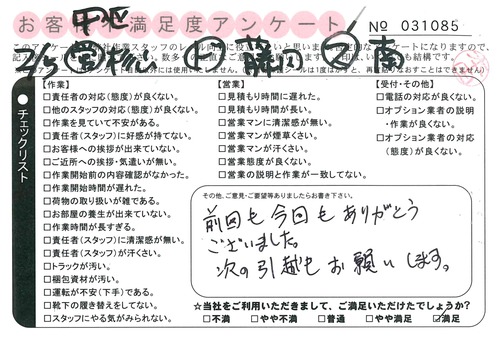 お客様不満足度アンケート
№ 031085
チェックリスト
【作業】
□責任者の対応(態度)が良くない。
□他のスタッフの対応(態度)が良くない。
□作業を見ていて不安がある。
□責任者(スタッフ)に好感が持てない。
□お客様への挨拶が出来ていない。
□ご近所への挨拶・気遣いが無い。
□作業開始前の内容確認がなかった。
□作業開始時間が遅れた。
□荷物の取り扱いが雑である。
□お部屋の養生が出来ていない。
□作業時間が長すぎる。
□責任者(スタッフ)に清潔感が無い。
□責任者(スタッフ)が汗くさい。
□トラックが汚い。
□梱包資材が汚い。
□運転が不安(下手)である。
□靴下の履き替えをしてない。
□スタッフにやる気がみられない。
【営業】
□見積もり時間に遅れた。
□見積もり時間が長い。
□営業マンに清潔感が無い。
□営業マンが煙草くさい。
□営業マンが汗くさい。
□営業態度が良くない。
□営業の説明と作業が一致してない。
【受付・その他】
□電話の対応が良くない。
□オプション業者の説明
・作業が良くない。
□オプション業者の対応
(態度)が良くない。
その他、ご意見・ご要望等ありましたらお書き下さい。
前回も今回もありがとう
ございました。
次の引越もお願いします。
☆当社をご利用いただきまして、ご満足いただけたでしょうか?
□不満 □やや不満 □普通 □やや満足 ☑満足